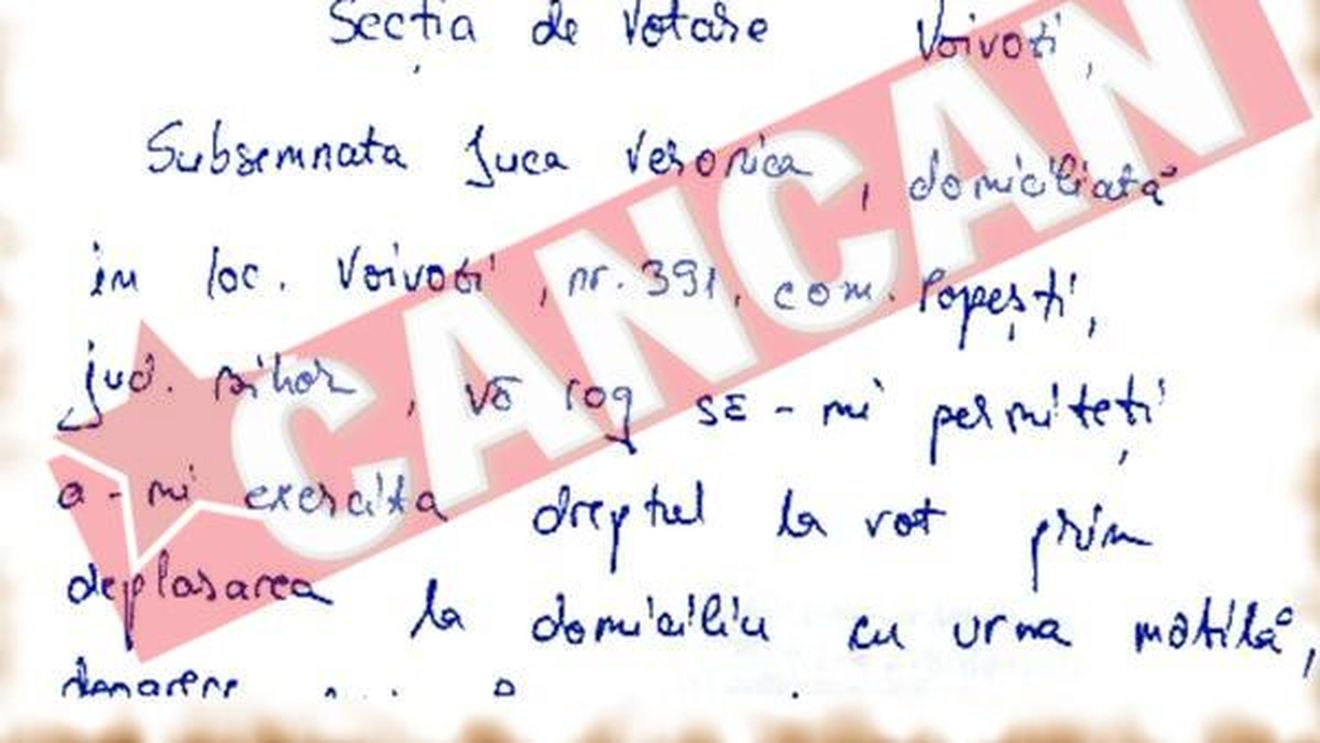 Secția de Votare Voivozi,
Subsemnata Juca Veronica, domiciliată
în loc. Voivozi, nr. 391, com. Popești,
jud. Bihor, vă rog să-mi permiteți
a-mi exercita dreptul la vot prin
deplasarea la domiciliu cu urna mobilă,
deoarece
CANCAN